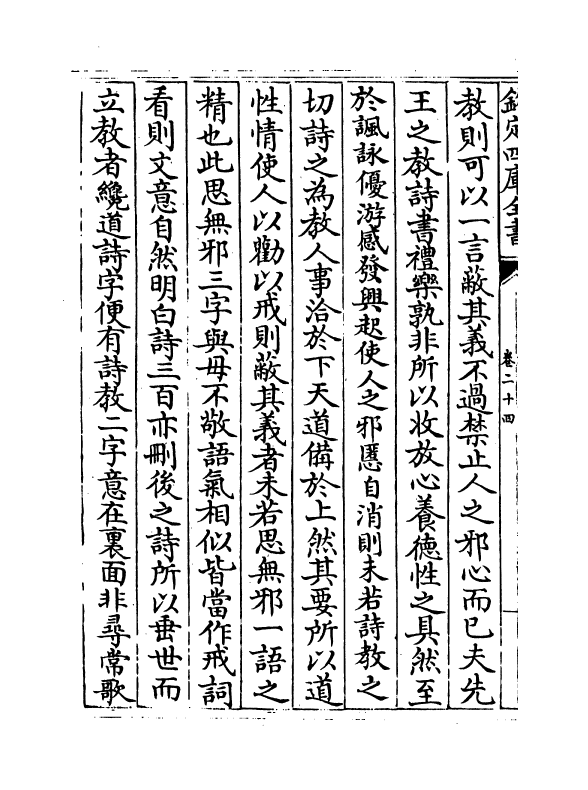 欽定四庫全書
卷二十四
教則可以一言蔽其義不過禁止人之邪心而已夫先
王之教詩書禮樂孰非所以收放心養德性之具然至
於諷詠優游感發興起使人之邪慝自消則未若詩教之
切詩之為教人事洽於下天道備於上然其要所以道
性情使人以勸以戒則蔽其義者未若思無邪一語之
精也此思無邪三字與毋不敬語氣相似皆當作戒詞
看則文意自然明白詩三百亦刪後之詩所以垂世而
立教者纔道詩字便有詩教二字意在裏面非尋常歌